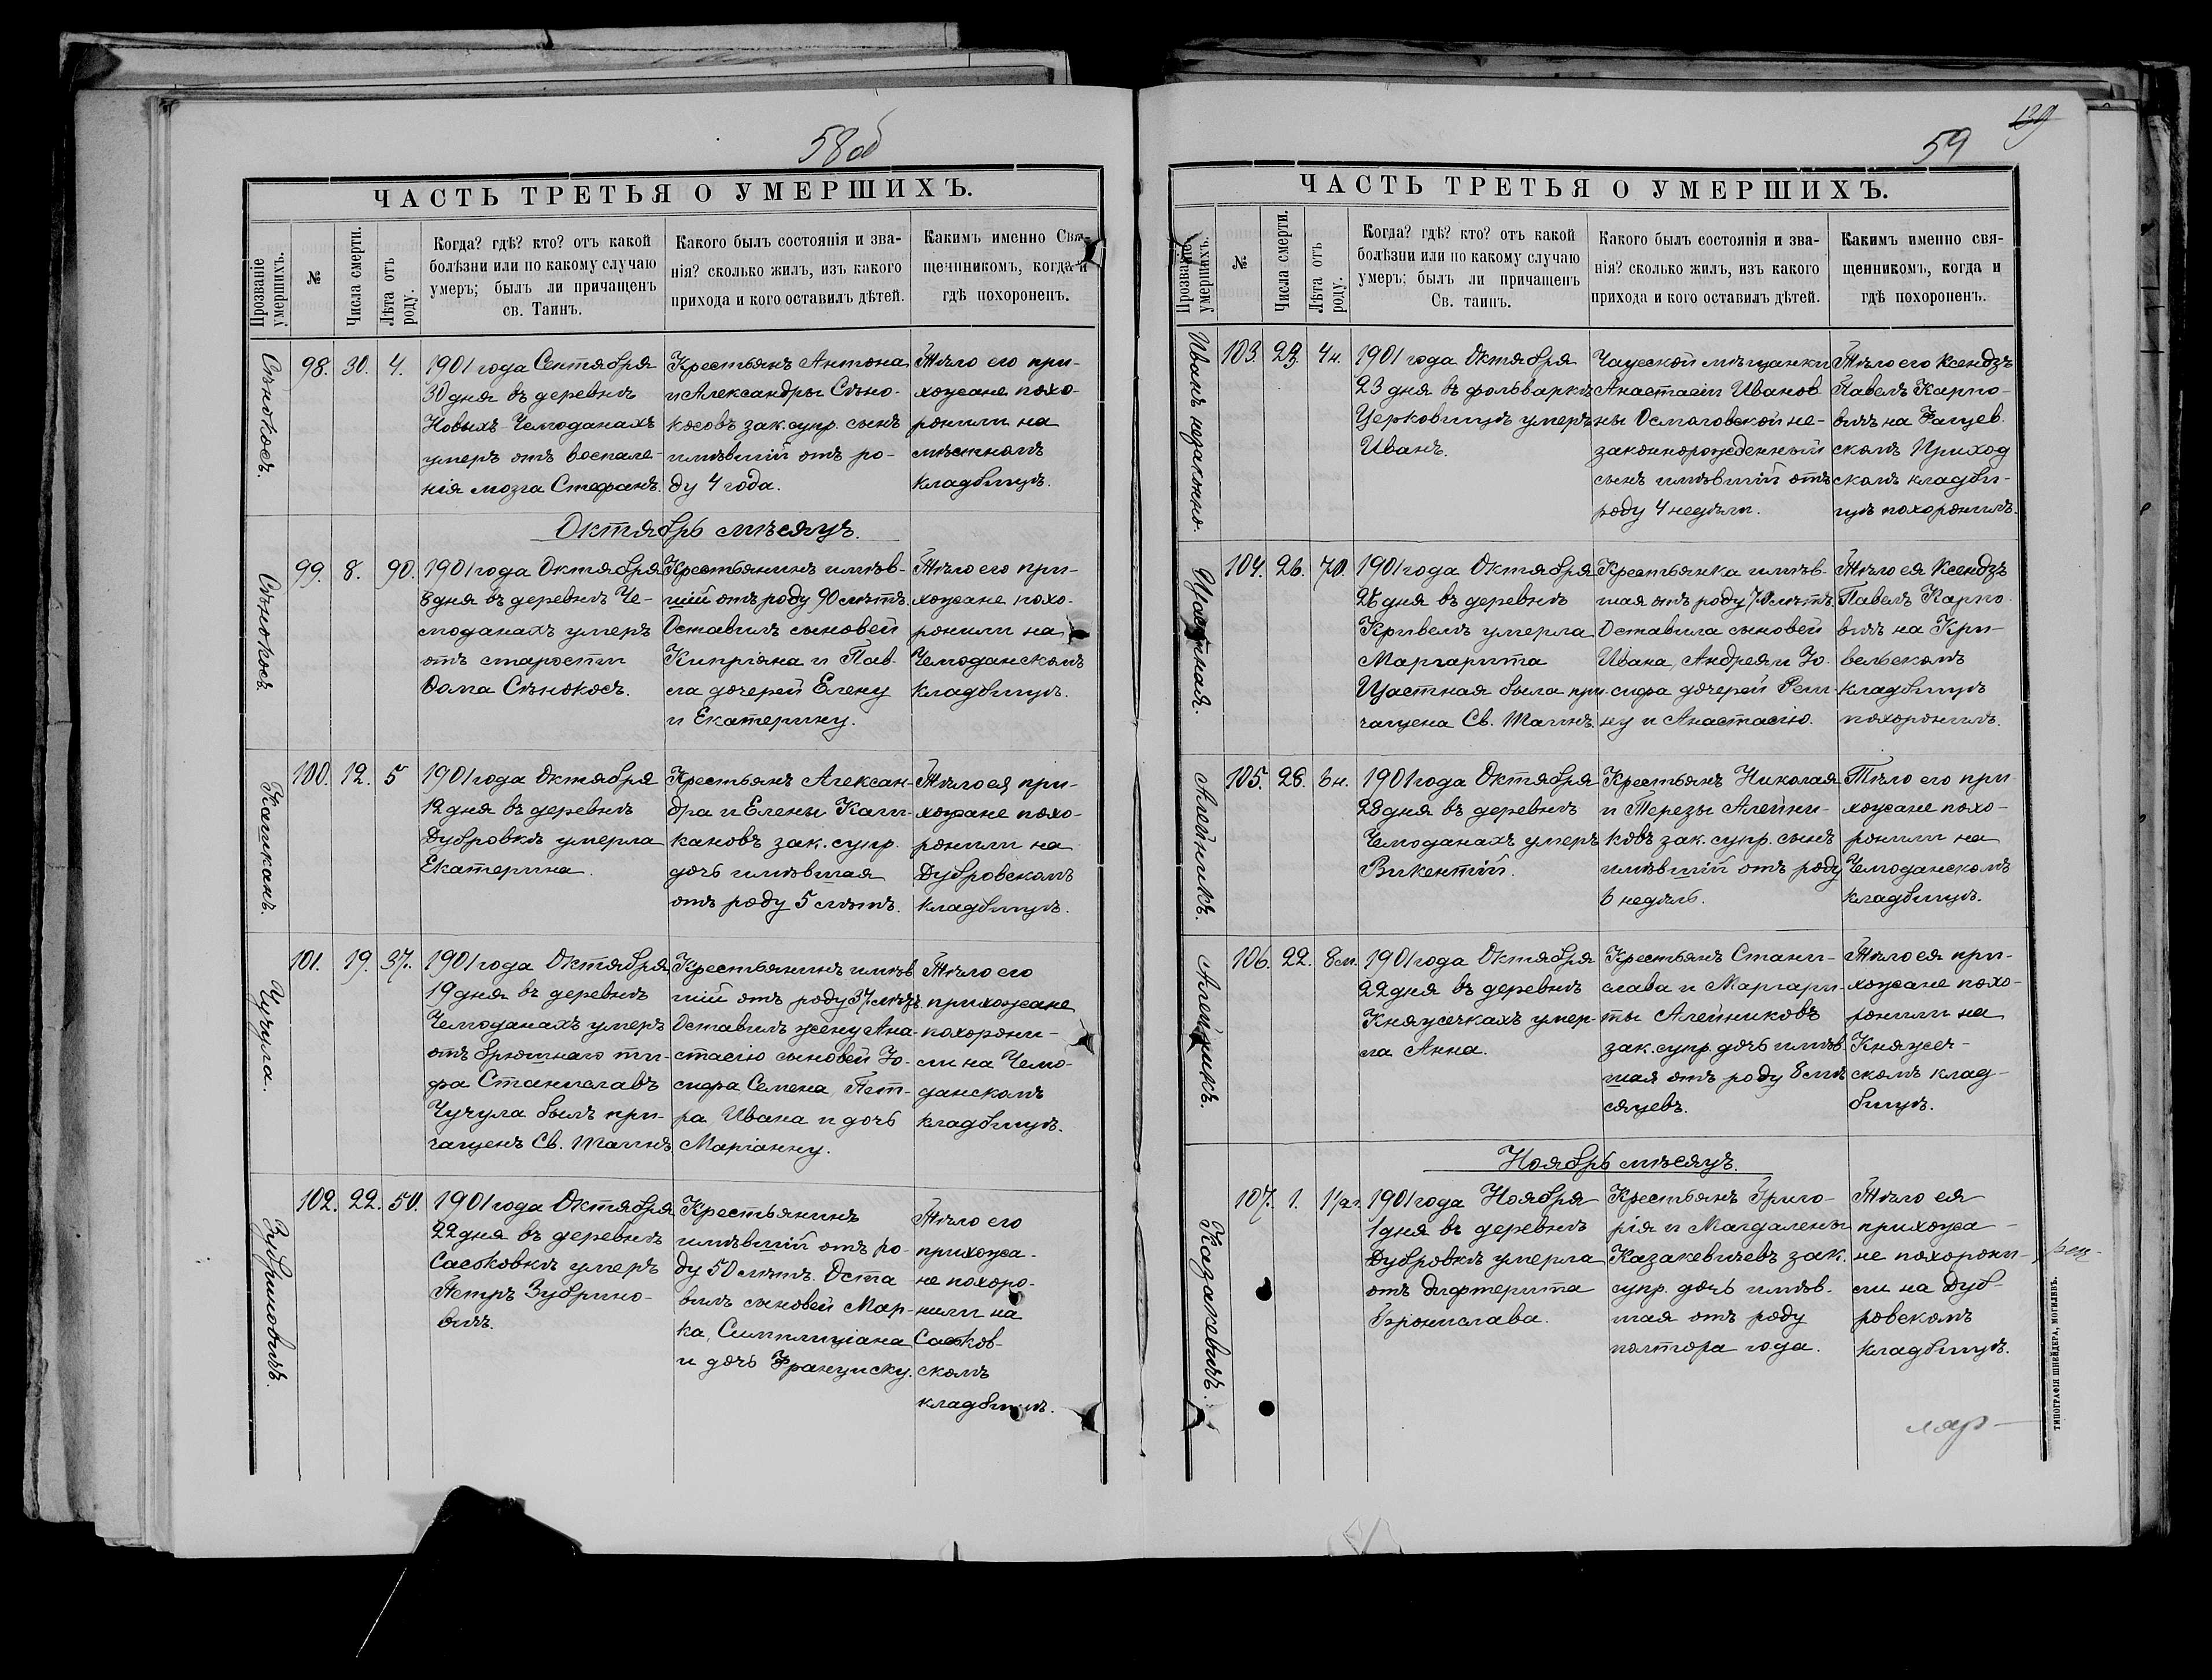 58об
ЧАСТЬ ТРЕТЬЯ О УМЕРШИХЪ.
Прозваніе умершихъ.
№
Числа смерти.
Лѣта отъ роду.
Когда? гдѣ? кто? отъ какой
болѣзни или по какому случаю
умеръ; былъ ли причащенъ
св. Таинъ.
Какого былъ состоянія и зва-
нія? сколько жилъ, изъ какого
прихода и кого оставилъ дѣтей.
Какимъ именно Свя-
щенникомъ, когда и
гдѣ похороненъ.
Сѣнокосъ.
98.
30.
4.
1901 года Сентября
30 дня въ деревнѣ
Новыхъ-Чемоданахъ
умеръ отъ воспале-
нія мозга Стефанъ.
Крестьянъ Антона
и Александры Сѣно-
косовъ зак. супр. сынъ
имѣвшій отъ ро-
ду 4 года.
Тѣло его при-
хожане похо-
ронили на
мѣстномъ
кладбищѣ.
Октябрь мѣсяцъ.
Сѣнокосъ.
99.
8.
90.
1901 года Октября
8 дня въ деревнѣ Че-
моданахъ умеръ
отъ старости
Ѳома Сѣнокосъ.
Крестьянинъ имѣв-
шій отъ роду 90 лѣтъ.
Оставилъ сыновей
Кипріяна и Пав-
ла дочерей Елену
и Екатерину.
Тѣло его при-
хожане похо-
ронили на
Чемоданскомъ
кладбищѣ.
Каликанъ.
100.
12.
5
1901 года Октября
12 дня въ деревнѣ
Дубровкѣ умерла
Екатерина.
Крестьянъ Алексан-
дра и Елены Кали-
кановъ зак. супр.
дочь имѣвшая
отъ роду 5 лѣтъ.
Тѣло ея при-
хожане похо-
ронили на
Дубровскомъ
кладбищѣ.
Чучула.
101.
19.
37.
1901 года Октября
19 дня въ деревнѣ
Чемоданахъ умеръ
отъ брюшнаго ти-
фа Станиславъ
Чучула былъ при-
чащенъ Св. Таинъ
Крестьянинъ имѣв
шій отъ роду 37 лѣтъ.
Оставилъ жену Ана-
стасію сыновей Іо-
сифа Семена, Пет-
ра Ивана и дочь
Маріанну.
Тѣло его
прихожане
похорони-
ли на Чемо-
данскомъ
кладбищѣ.
Зубриновичъ.
102.
22.
50.
1901 года Октября
22 дня въ деревнѣ
Сасковкѣ умеръ
Петръ Зубрино-
вичъ.
Крестьянинъ
имѣвшій отъ ро-
ду 50 лѣтъ. Оста
вилъ сыновей Мар-
ка, Симплиціана
и дочь Франциску.
Тѣло его
прихожа-
не похоро-
нили на
Сасков-
скомъ
кладбищѣ.
59
129
ЧАСТЬ ТРЕТЬЯ О УМЕРШИХЪ.
Прозваніе умершихъ.
№
Числа смерти.
Лѣта отъ роду.
Когда? гдѣ? кто? отъ какой
болѣзни или по какому случаю
умеръ; былъ ли причащенъ
Св. таинъ.
Какого былъ состоянія и зва-
нія? сколько жилъ, изъ какого
прихода и кого оставилъ дѣтей.
Какимъ именно свя-
щенникомъ, когда и
гдѣ похороненъ.
Иванъ незаконно.
103.
23.
4 н.
1901 года Октября
23 дня въ фольваркѣ
Церковищѣ умеръ
Иванъ.
Чаусской мѣщанки
Анастасіи Иванов
ны Осмоловской не-
законнорожденный
сынъ имѣвшій отъ
роду 4 недѣли.
Тѣло его Ксендзъ
Павелъ Карпо-
вичъ на Фащев
скомъ Приход
скомъ кладби-
щѣ похоронилъ.
Щастная.
104.
26.
70.
1901 года Октября
26 дня въ деревнѣ
Кривелѣ умерла
Маргарита
Щастная была при-
чащена Св. Таинъ.
Крестьянка имѣв-
шая отъ роду 70 лѣтъ.
Оставила сыновей
Ивана, Андрея и Іо-
сифа дочерей Реги-
ну и Анастасію.
Тѣло ея Ксендзъ
Павелъ Карпо-
вичъ на Кри-
вельскомъ
кладбищѣ
похоронилъ.
Алейникъ.
105.
28.
6 н.
1901 года Октября
28 дня въ деревнѣ
Чемоданахъ умеръ
Викентій.
Крестьянъ Николая
и Терезы Алейни-
ковъ зак. супр. сынъ
имѣвшій отъ роду
6 недѣль.
Тѣло его при-
хожане похо-
ронили на
Чемоданскомъ
кладбищѣ.
Алейникъ.
106.
22.
8 м.
1901 года Октября
22 дня въ деревнѣ
Княжечкахъ умер-
ла Анна.
Крестьянъ Стани-
слава и Маргари-
ты Алейниковъ
зак. супр. дочь имѣв
шая отъ роду 8 мѣ
сяцевъ.
Тѣло ея при-
хожане похо-
ронили на
Княжеч-
скомъ клад-
бищѣ.
Ноябрь мѣсяцъ.
Казакевичъ.
107.
1.
1½ г.
1901 года Ноября
1 дня въ деревнѣ
Дубровкѣ умерла
отъ дифтерита
Бронислава.
Крестьянъ Григо-
рія и Магдалены
Казакевичевъ зак.
супр. дочь имѣв-
шая отъ роду
полтора года.
Тѣло ея
прихожа-
не похорони-
ли на Дуб-
ровскомъ
кладбищѣ.
ТИПОГРАФІЯ ШНЕЙДЕРА, МОГИЛЕВЪ.